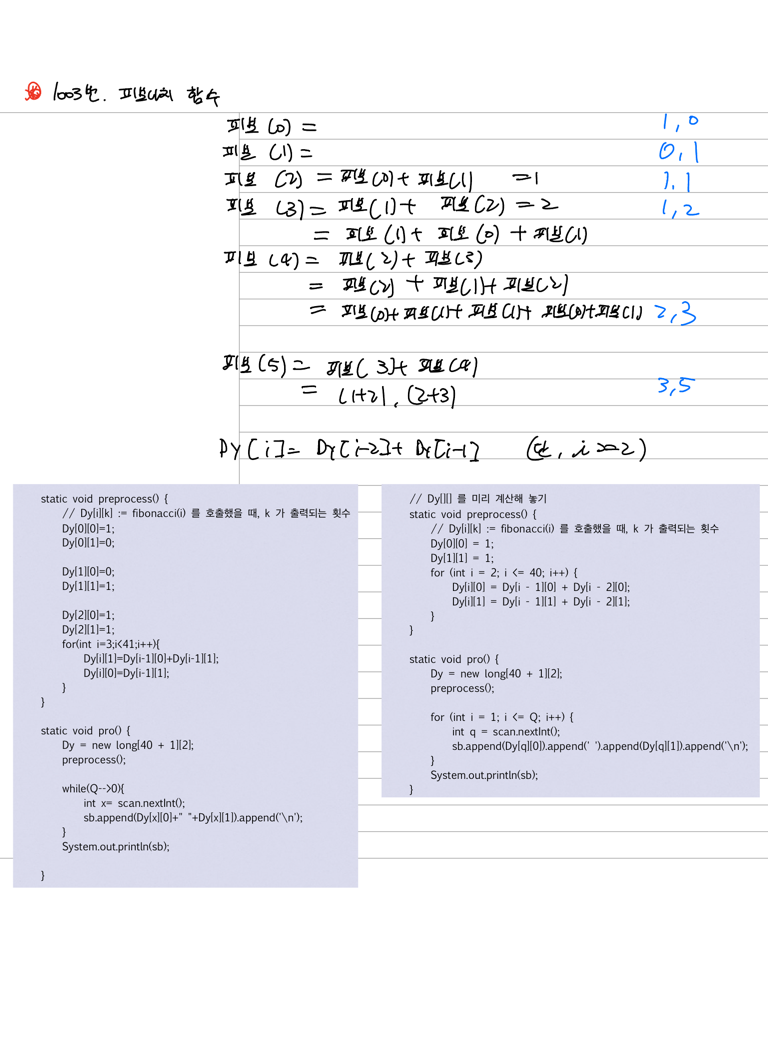 1003번. 피보나치 함수
피보(0) = 1,0
피보(1) = 0,1
피보(2) = 피보(0)+ 피보(1) =1 1,1
피보(3)= 피보(1)+ 피보(2) =2 1,2
= 피보(1)+ 피보(0) + 피보(1)
피보(4)= 피보(2)+ 피보(3)
= 피보(2) + 피보(1)+ 피보(2)
= 피보(0)+ 피보(1)+ 피보(1)+ 피보(0)+피보(1) 2,3
피보(5)= 피보(3)+ 피보(4)
= (1+2), (2+3) 3,5
DY[i]= DY[i-2]+ DY[i-1] (단, i>=2)
static void preprocess() {
// Dy[i][k] := fibonacci(i) 를 호출했을 때, k 가 출력되는 횟수
Dy[0][0]=1;
Dy[0][1]=0;
Dy[1][0]=0;
Dy[1][1]=1;
Dy[2][0]=1;
Dy[2][1]=1;
for(int i=3;i<41;i++){
Dy[i][1]=Dy[i-1][0]+Dy[i-1][1];
Dy[i][0]=Dy[i-1][1];
}
}
static void pro() {
Dy = new long[40 + 1][2];
preprocess();
while(Q-->0){
int x= scan.nextInt();
sb.append(Dy[x][0]+" "+Dy[x][1]).append('\n');
}
System.out.println(sb);
}
// Dy[][] 를 미리 계산해 놓기
static void preprocess() {
// Dy[i][k] := fibonacci(i) 를 호출했을 때, k 가 출력되는 횟수
Dy[0][0] = 1;
Dy[1][1] = 1;
for (int i = 2; i <= 40; i++) {
Dy[i][0] = Dy[i - 1][0] + Dy[i - 2][0];
Dy[i][1] = Dy[i - 1][1] + Dy[i - 2][1];
}
}
static void pro() {
Dy = new long[40 + 1][2];
preprocess();
for (int i = 1; i <= Q; i++) {
int q = scan.nextInt();
sb.append(Dy[q][0]).append(' ').append(Dy[q][1]).append('\n');
}
System.out.println(sb);
}